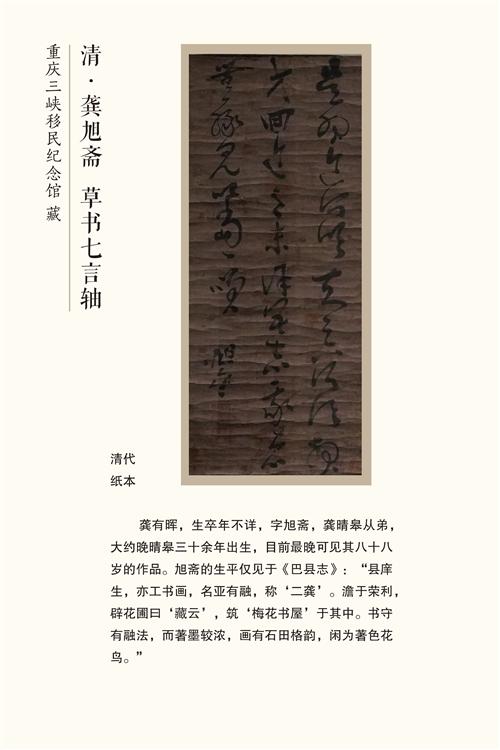 清·龚旭斋 草书七言轴
重庆三峡移民纪念馆 藏
清代
纸本
龚有晖，生卒年不详，字旭斋，龚晴皋从弟，
大约晚晴皋三十余年出生，目前最晚可见其八十八
岁的作品。旭斋的生平仅见于《巴县志》：“县庠
生，亦工书画，名亚有融，称‘二龚’。澹于荣利，
辟花圃曰‘藏云’，筑‘梅花书屋’于其中。书守
有融法，而著墨较浓，画有石田格韵，闲为著色花
鸟。”